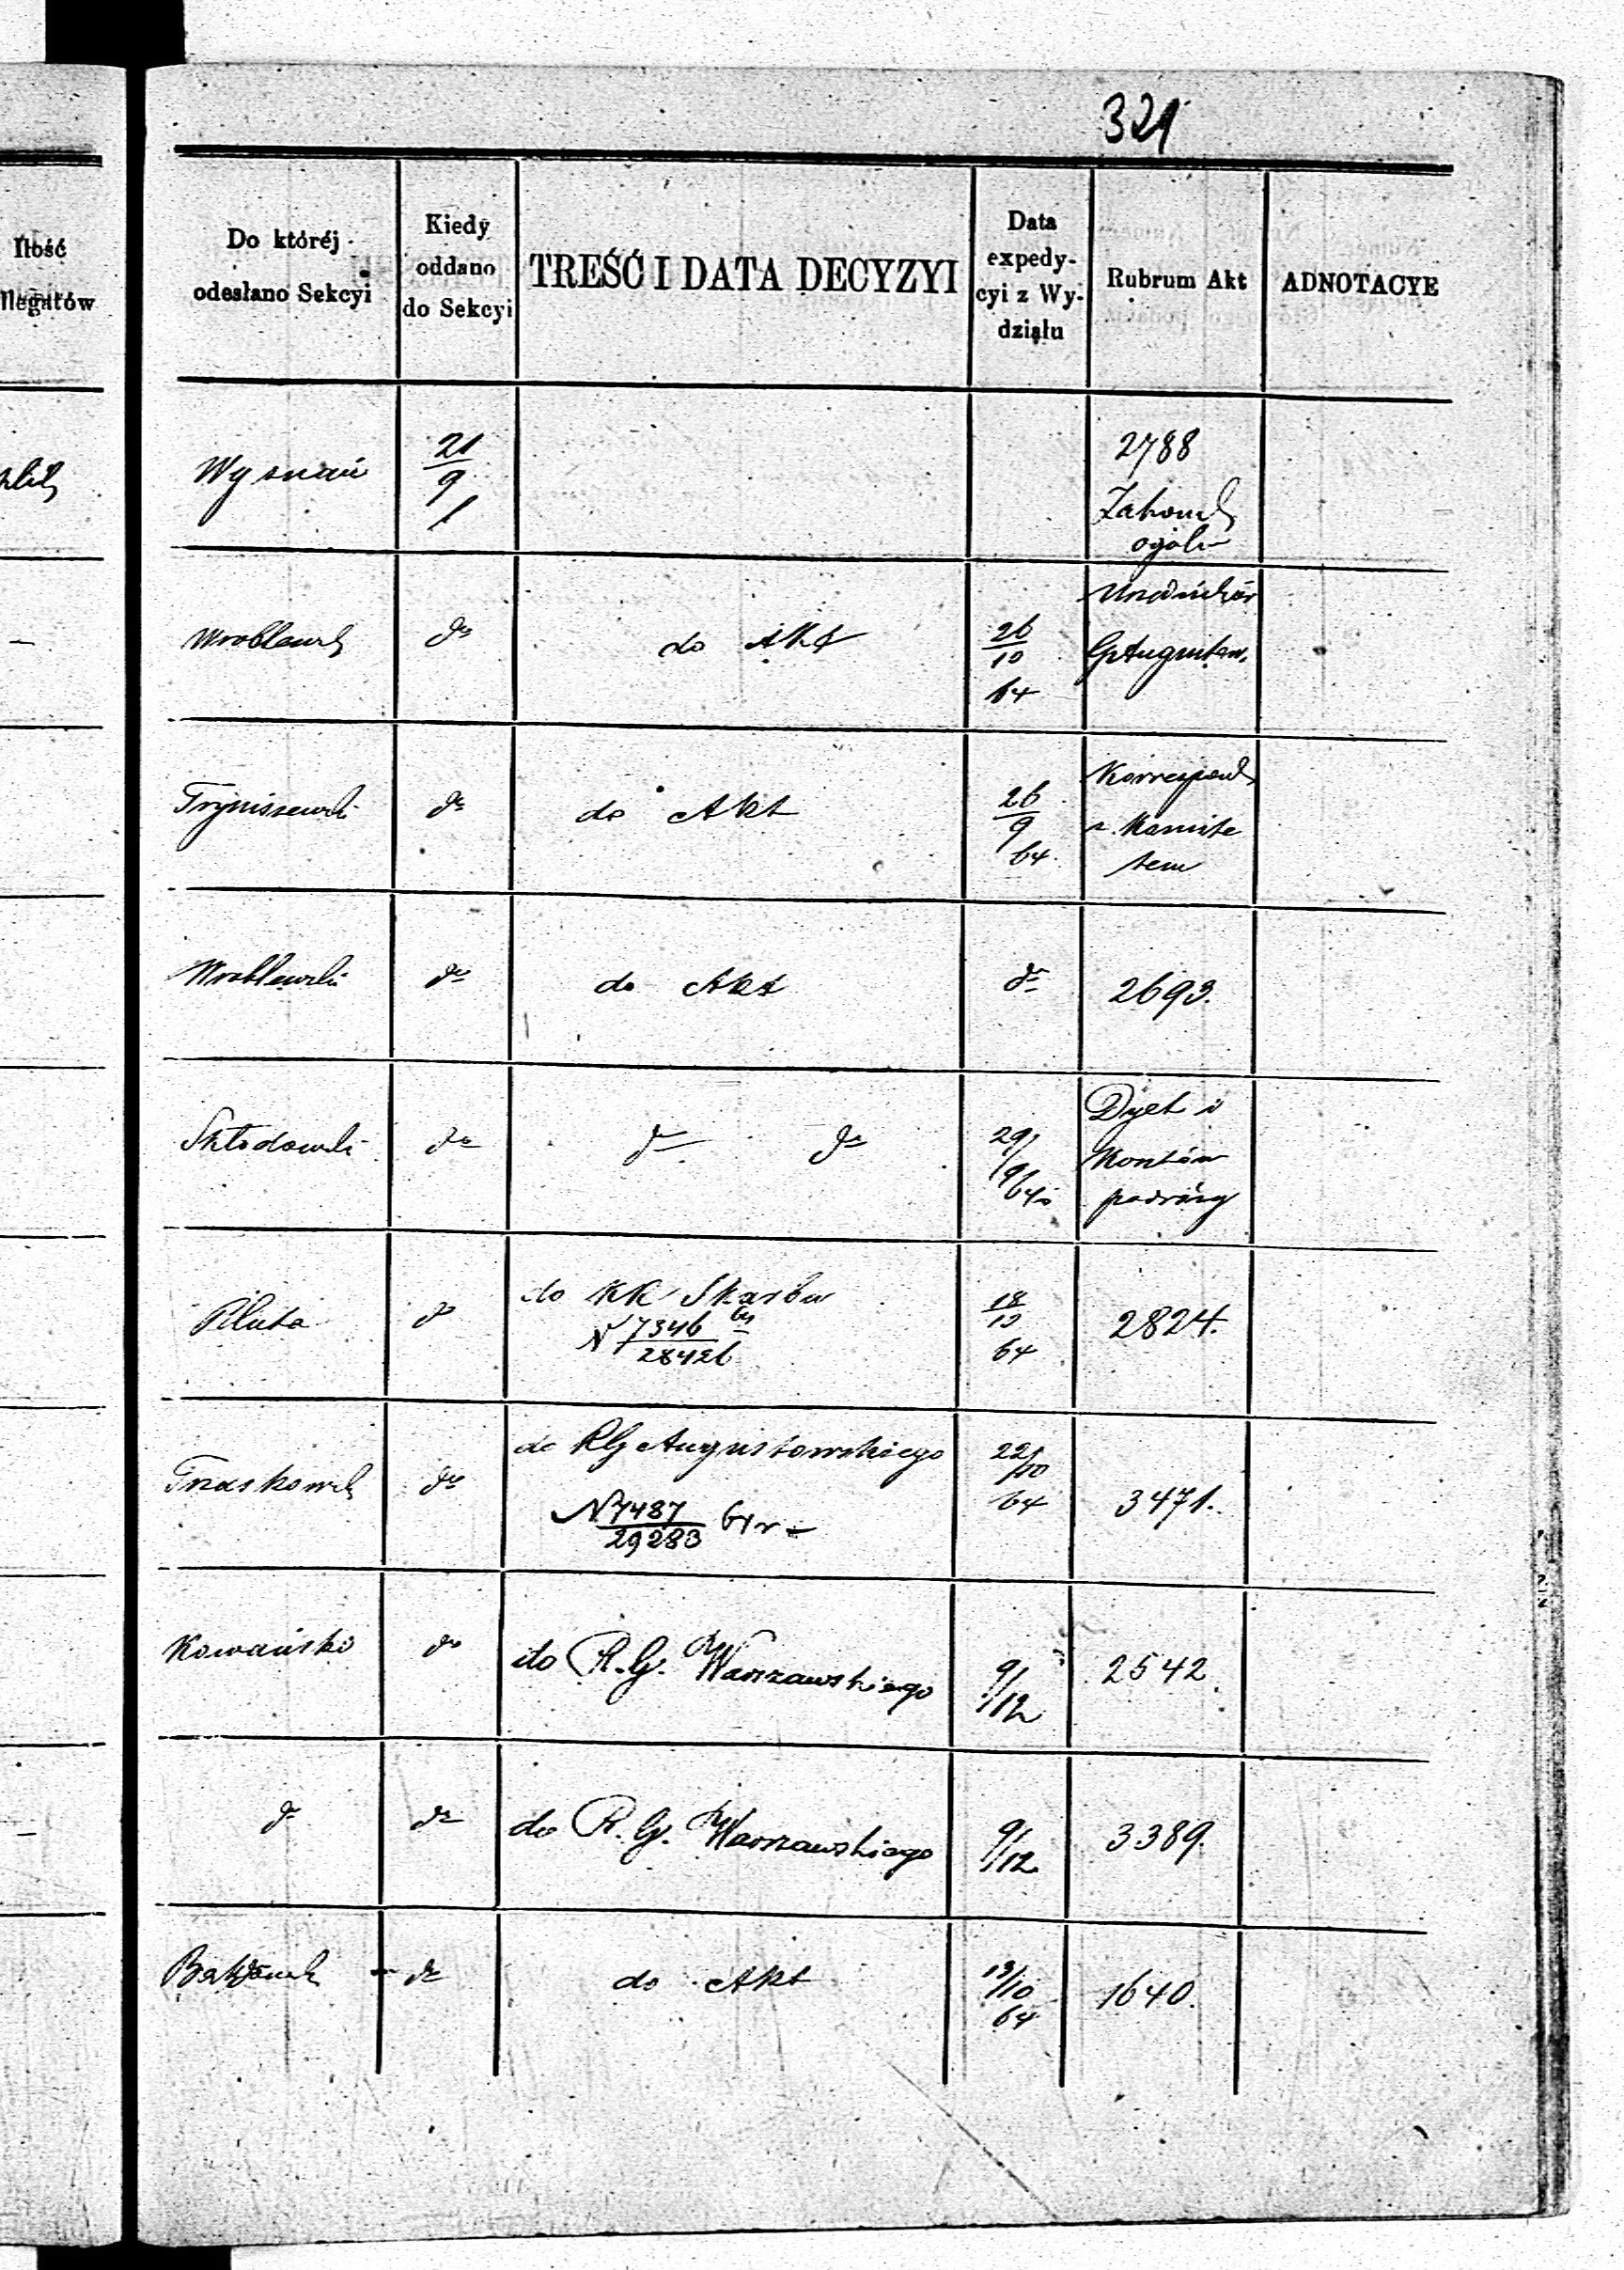 321
Ilość
llegatów
Do któréj
odesłano Sekcyi
Kiedy
oddano
do Sekcyi
TREŚĆ I DATA DECYZYI
Data
expedy-
cyi z Wy-
działu
Rubrum Akt
ADNOTACYE
Wyznań
21
9
2788
Zakonów
ogóln
Wroblewsk
do
do Akt
26
10
64
Urzędników
GAugustow.
Tryniszewski
do
do Akt
26
9
64.
Korrespond
z Komite
tem
Wroblewski
do
do Akt
do
2693.
Skłodowski
do
do do
29/
9/
64.
Dyet i
Kosztów
podróży
Pluta
do
do KK Skarbu
N 7346
28426
18
10
64
2824.
Trzaskowsk
do
do RG Augustowskiego
N 7487 64 r
29283
22/
10
64
3471.
Kowańsko
do
do R. G. Warszawskiego
9/12
2542
do
do
do R. G. Warszawskiego
9/12
3389.
do
do Akt
13/10
64
1640.